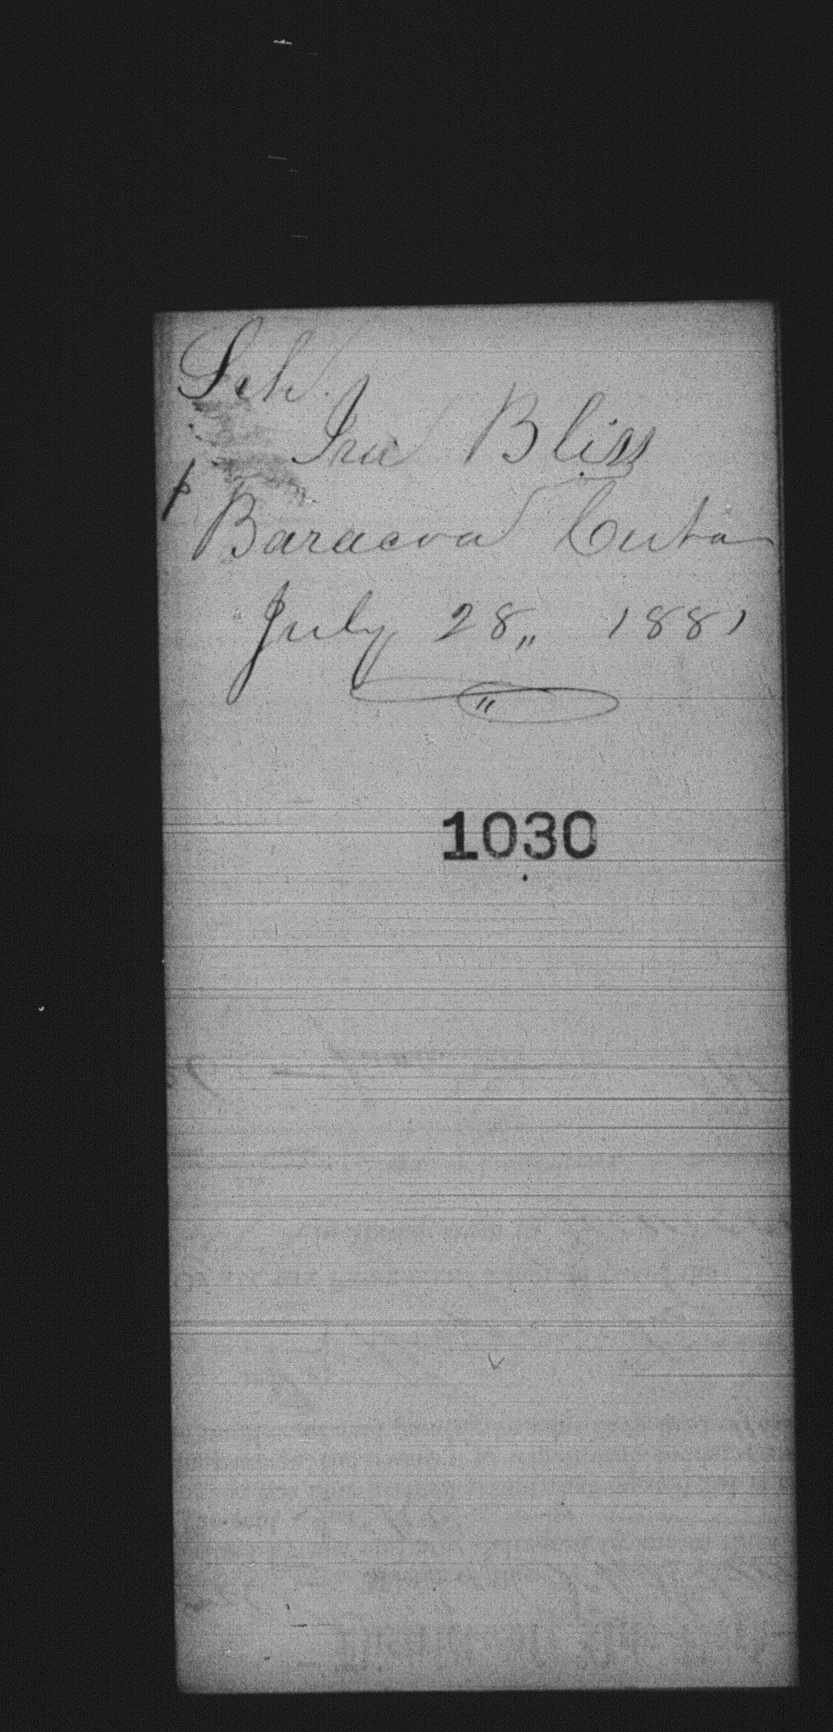 Sch.
Ira Bliss
Baracoa Cuba
July 28,, 1881
1030